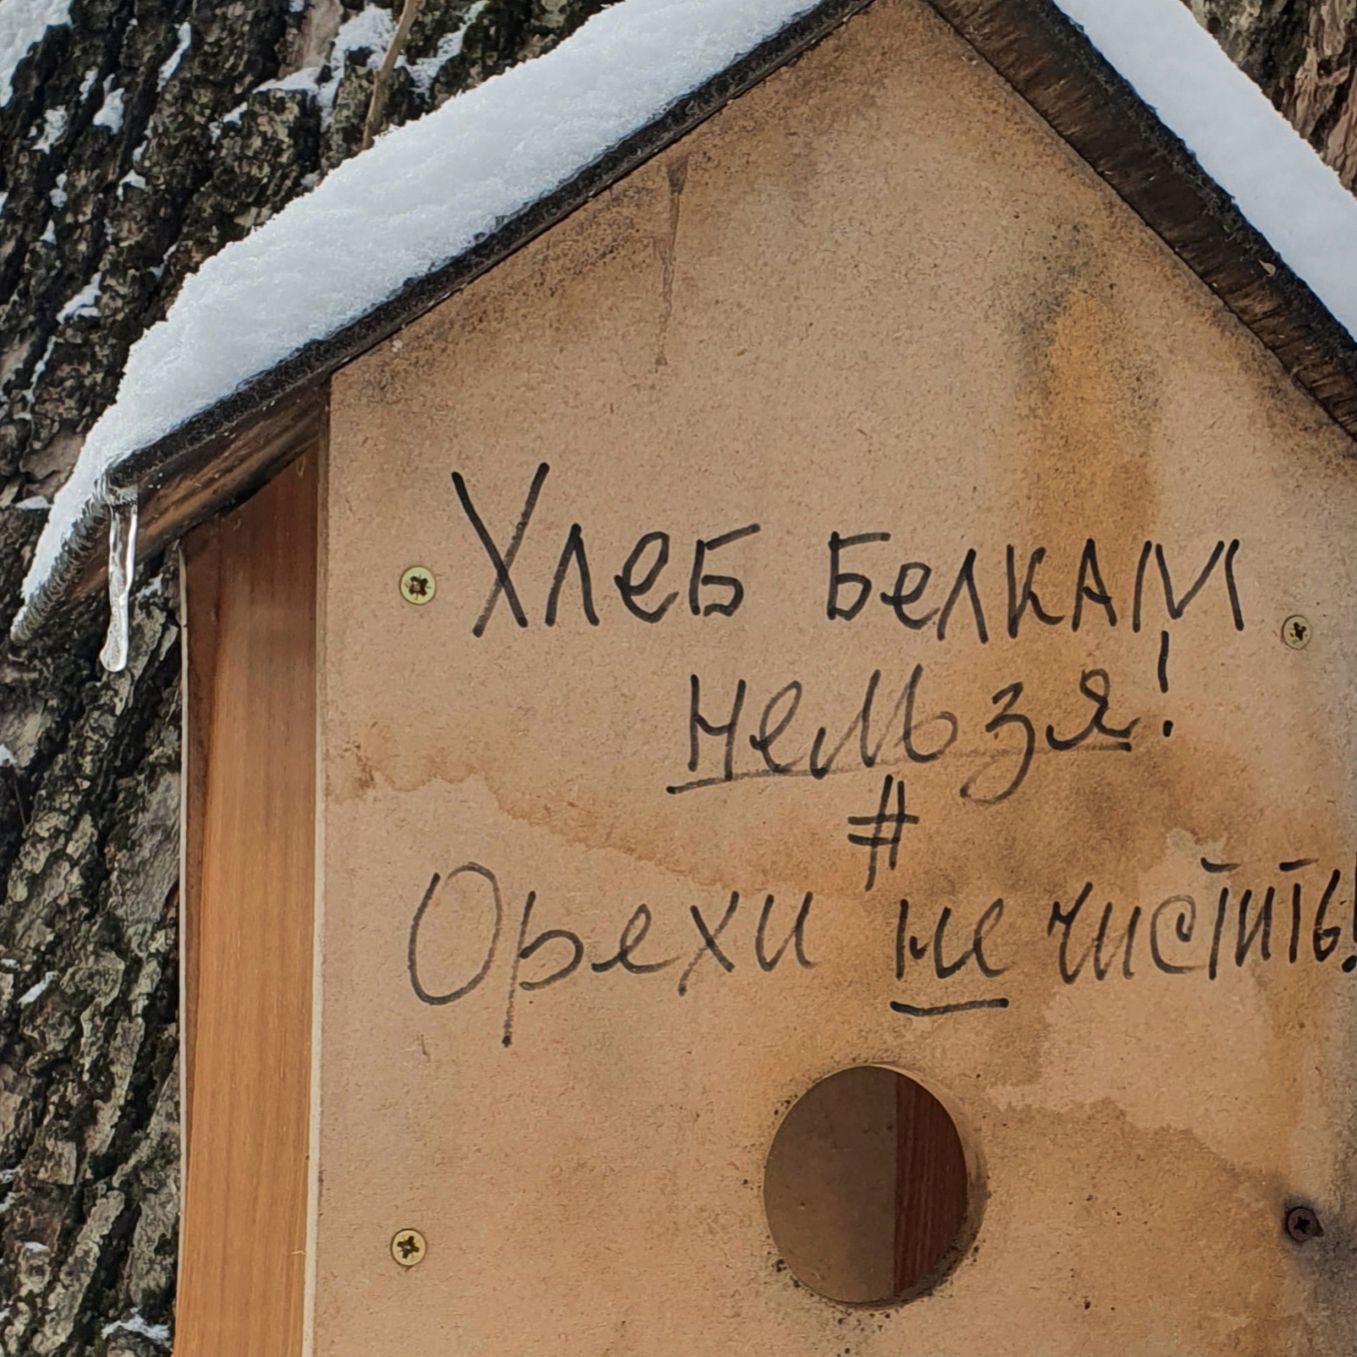 Хлеб белкам
нельзя!
#
Орехи не чистить!